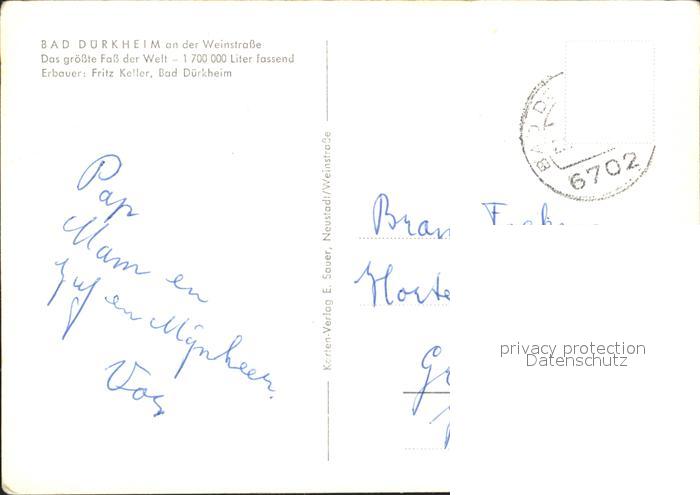 BAD DÜRKHEIM an der Weinstraße
Das größte Faß der Welt – 1 700 000 Liter fassend
Erbauer: Fritz Keller, Bad Dürkheim
Pap
Mam en
Juf en Mijnheer
Vos
Karten-Verlag E. Sauer, Neustadt/Weinstraße
BAD D
6702
Bran
Horte
Gr
privacy protection
Datenschutz